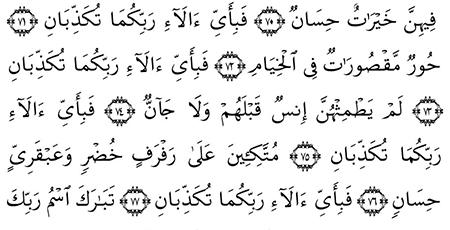 فِيهِنَّ خَيْرَٰتٌ حِسَانٌ ﴿٧٠﴾ فَبِأَىِّ ءَالَآءِ رَبِّكُمَا تُكَذِّبَانِ ﴿٧١﴾
حُورٌ مَّقْصُورَٰتٌ فِى ٱلْخِيَامِ ﴿٧٢﴾ فَبِأَىِّ ءَالَآءِ رَبِّكُمَا تُكَذِّبَانِ
﴿٧٣﴾ لَمْ يَطْمِثْهُنَّ إِنسٌ قَبْلَهُمْ وَلَا جَآنٌّ ﴿٧٤﴾ فَبِأَىِّ ءَالَآءِ
رَبِّكُمَا تُكَذِّبَانِ ﴿٧٥﴾ مُتَّكِـِٔينَ عَلَىٰ رَفْرَفٍ خُضْرٍ وَعَبْقَرِىٍّ
حِسَانٍ ﴿٧٦﴾ فَبِأَىِّ ءَالَآءِ رَبِّكُمَا تُكَذِّبَانِ ﴿٧٧﴾ تَبَٰرَكَ ٱسْمُ رَبِّكَ